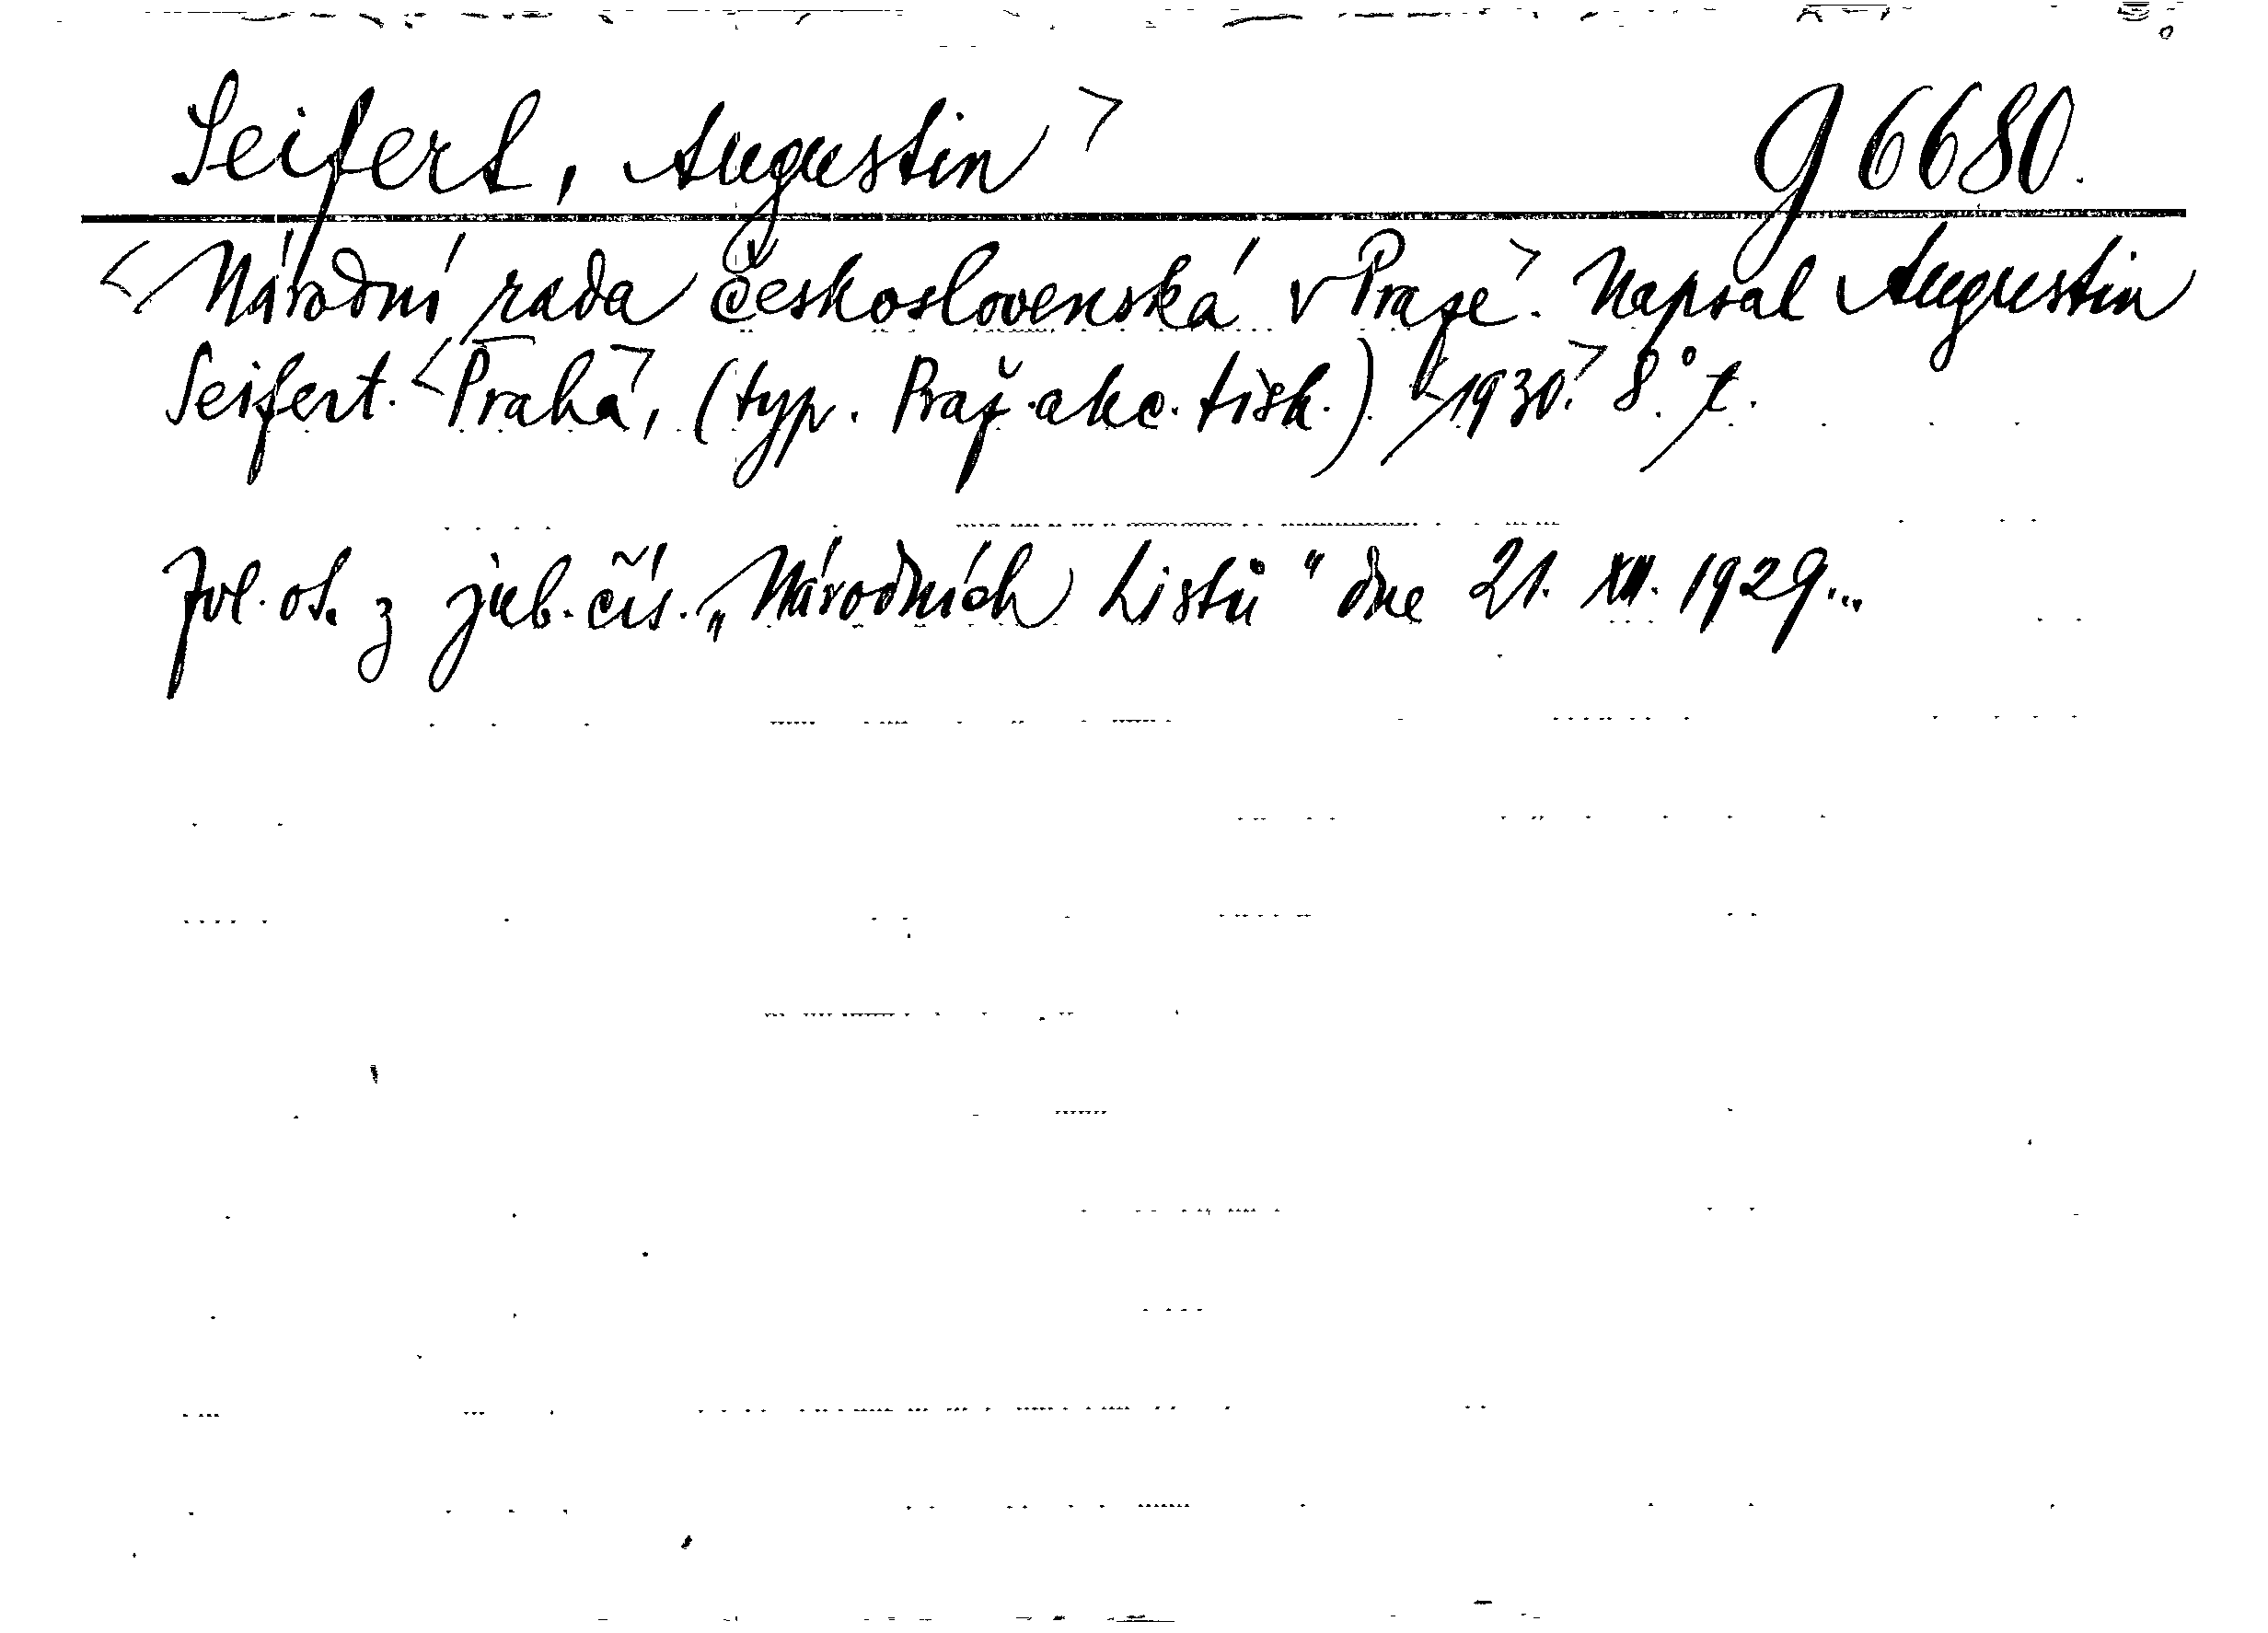 Seifert, Augustin> g 6680.
<Národní rada československá v Praze>. Napsal Augustin
Seifert. <Praha>, (typ. Praž. akc. tisk.) <1930>. 8° t.
Zvl. ot. z jub. čís. „Národních Listů" dne 21. XII. 1929...